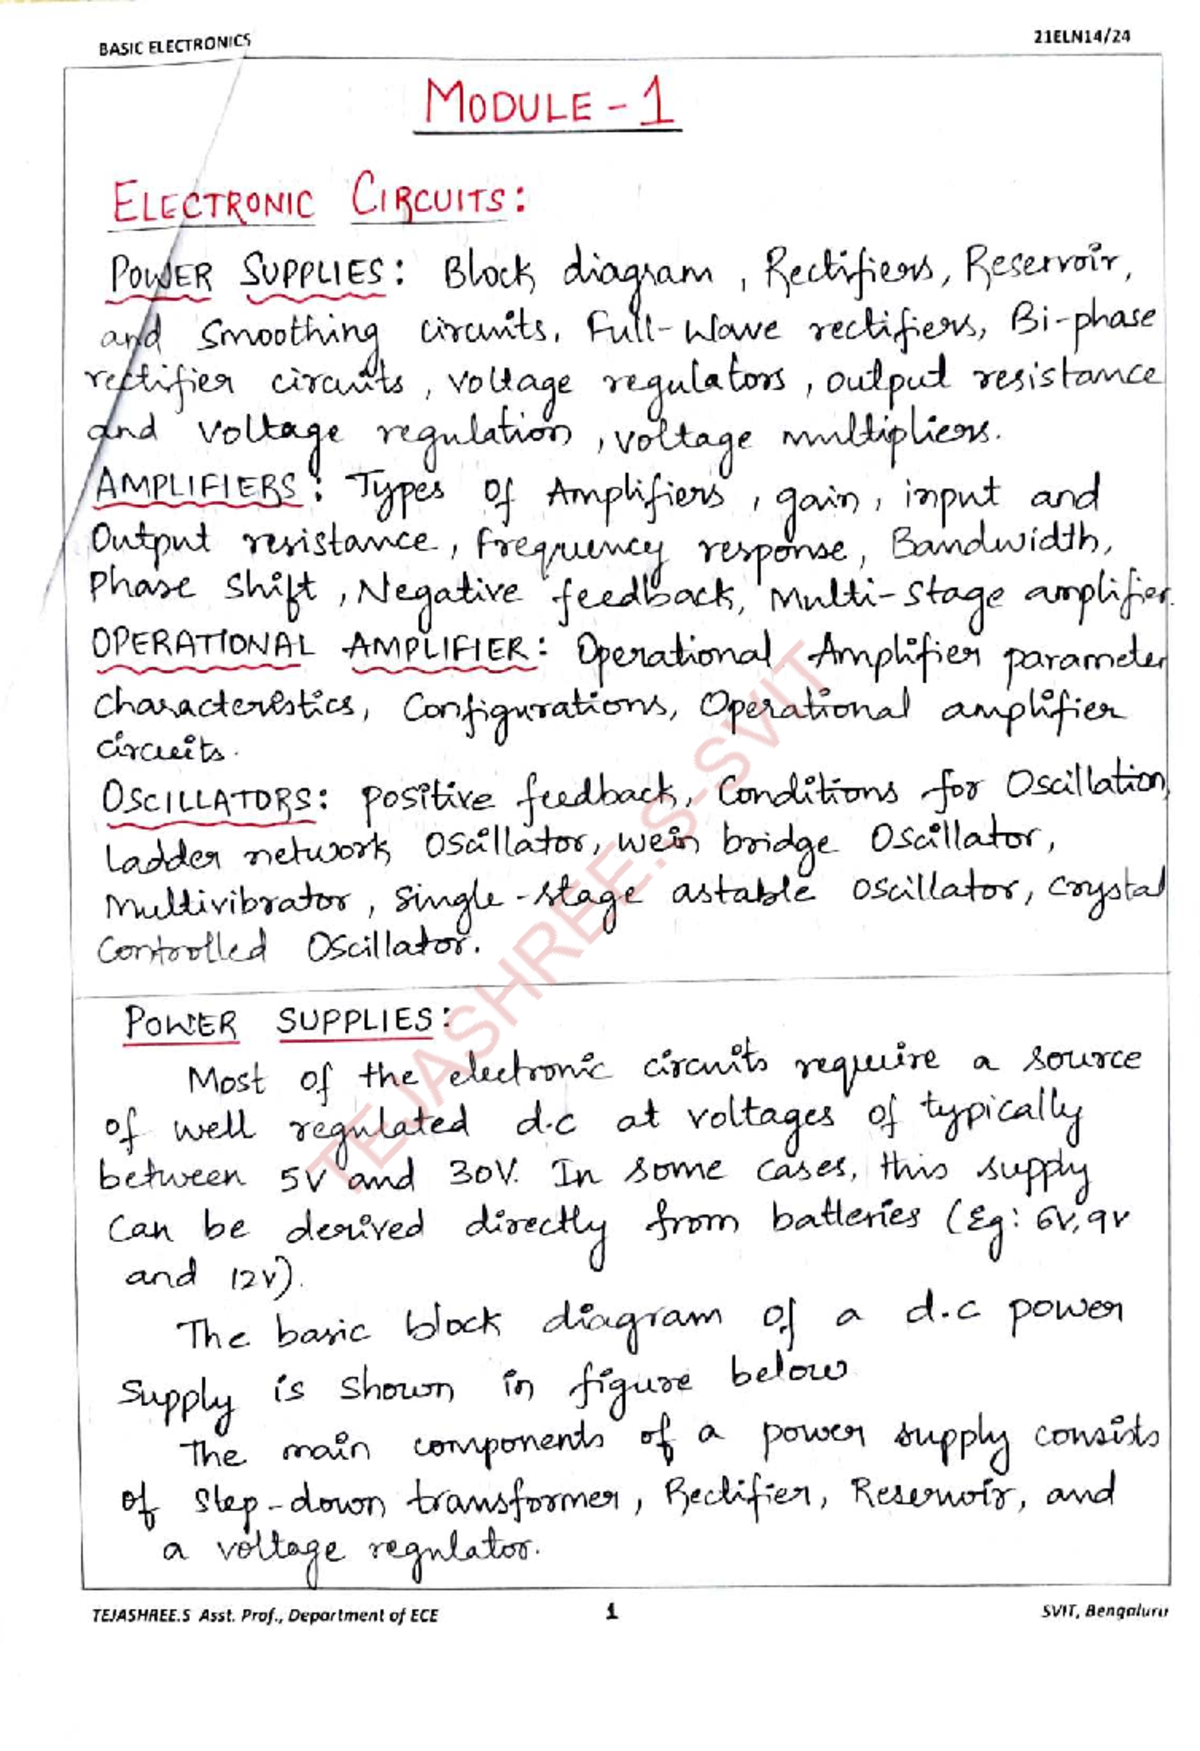 BASIC ELECTRONICS 21ELN14/24
MODULE - 1
ELECTRONIC CIRCUITS:
POWER SUPPLIES: Block diagram, Rectifiers, Reservoir,
and smoothing circuits, Full-wave rectifiers, Bi-phase
rectifier circuits, voltage regulators, output resistance
and voltage regulation, voltage multipliers.
AMPLIFIERS: Types of Amplifiers, gain, input and
Output resistance, Frequency response, Bandwidth,
Phase shift, Negative feedback, Multi-stage amplifier.
OPERATIONAL AMPLIFIER: Operational Amplifier parameter
characteristics, Configurations, Operational amplifier
circuits.
OSCILLATORS: positive feedback, Conditions for Oscillation,
Ladder network Oscillator, wein bridge Oscillator,
Multivibrator, Single-stage astable oscillator, Crystal
Controlled Oscillator.
POWER SUPPLIES:
Most of the electronic circuits require a source
of well regulated d.c at voltages of typically
between 5V and 30V. In some cases, this supply
can be derived directly from batteries (Eg: 6V, 9V
and 12V).
The basic block diagram of a d.c power
supply is shown in figure below
The main components of a power supply consists
of step-down transformer, Rectifier, Reservoir, and
a voltage regulator.
TEJASHREE.S-SVIT
TEJASHREE.S Asst. Prof., Department of ECE 1 SVIT, Bengaluru